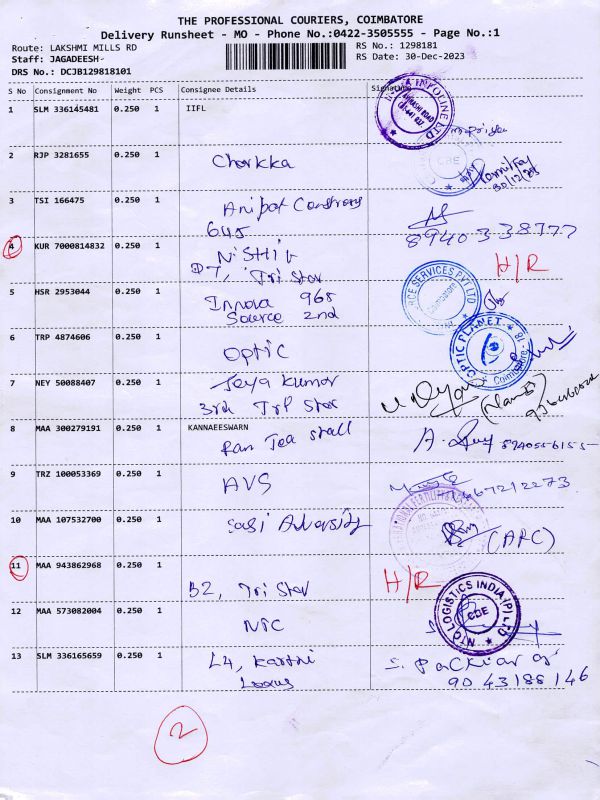 THE PROFESSIONAL COURIERS, COIMBATORE
Delivery Runsheet - MO - Phone No.:0422-3505555 - Page No.:1
Route: LAKSHMI MILLS RD
RS No.: 1298181
Staff: JAGADEESH-
RS Date: 30-Dec-2023
DRS No.: DCJB129818101
S No Consignment No Weight PCS Consignee Details Signature
1 SLM 336145481 0.250 1 IIFL
2 RJP 3281655 0.250 1 Chorkka
30/12/23
3 TSI 166475 0.250 1 Anibot
645
8940338777
4 KUR 7000814832 0.250 1 Nishi
D7, Tri Star
H/R
5 HSR 2953044 0.250 1 Innova 968
Source 2nd
6 TRP 4874606 0.250 1 Optic
OPTIC PLANET
7 NEY 50088407 0.250 1 Jeya Kumar
3rd Tri Star
8 MAA 300279191 0.250 1 KANNAEESWARN
Ran Tea stall
9 TRZ 100053369 0.250 1 AVS
10 MAA 107532700 0.250 1 Sasi
(ARC)
11 MAA 943862968 0.250 1 B2, Tri Star H/R
12 MAA 573082004 0.250 1 NTC
NTC LOGISTICS INDIA (P) LTD
CBE
13 SLM 336165659 0.250 1 L4, Karthi
9043188146
2